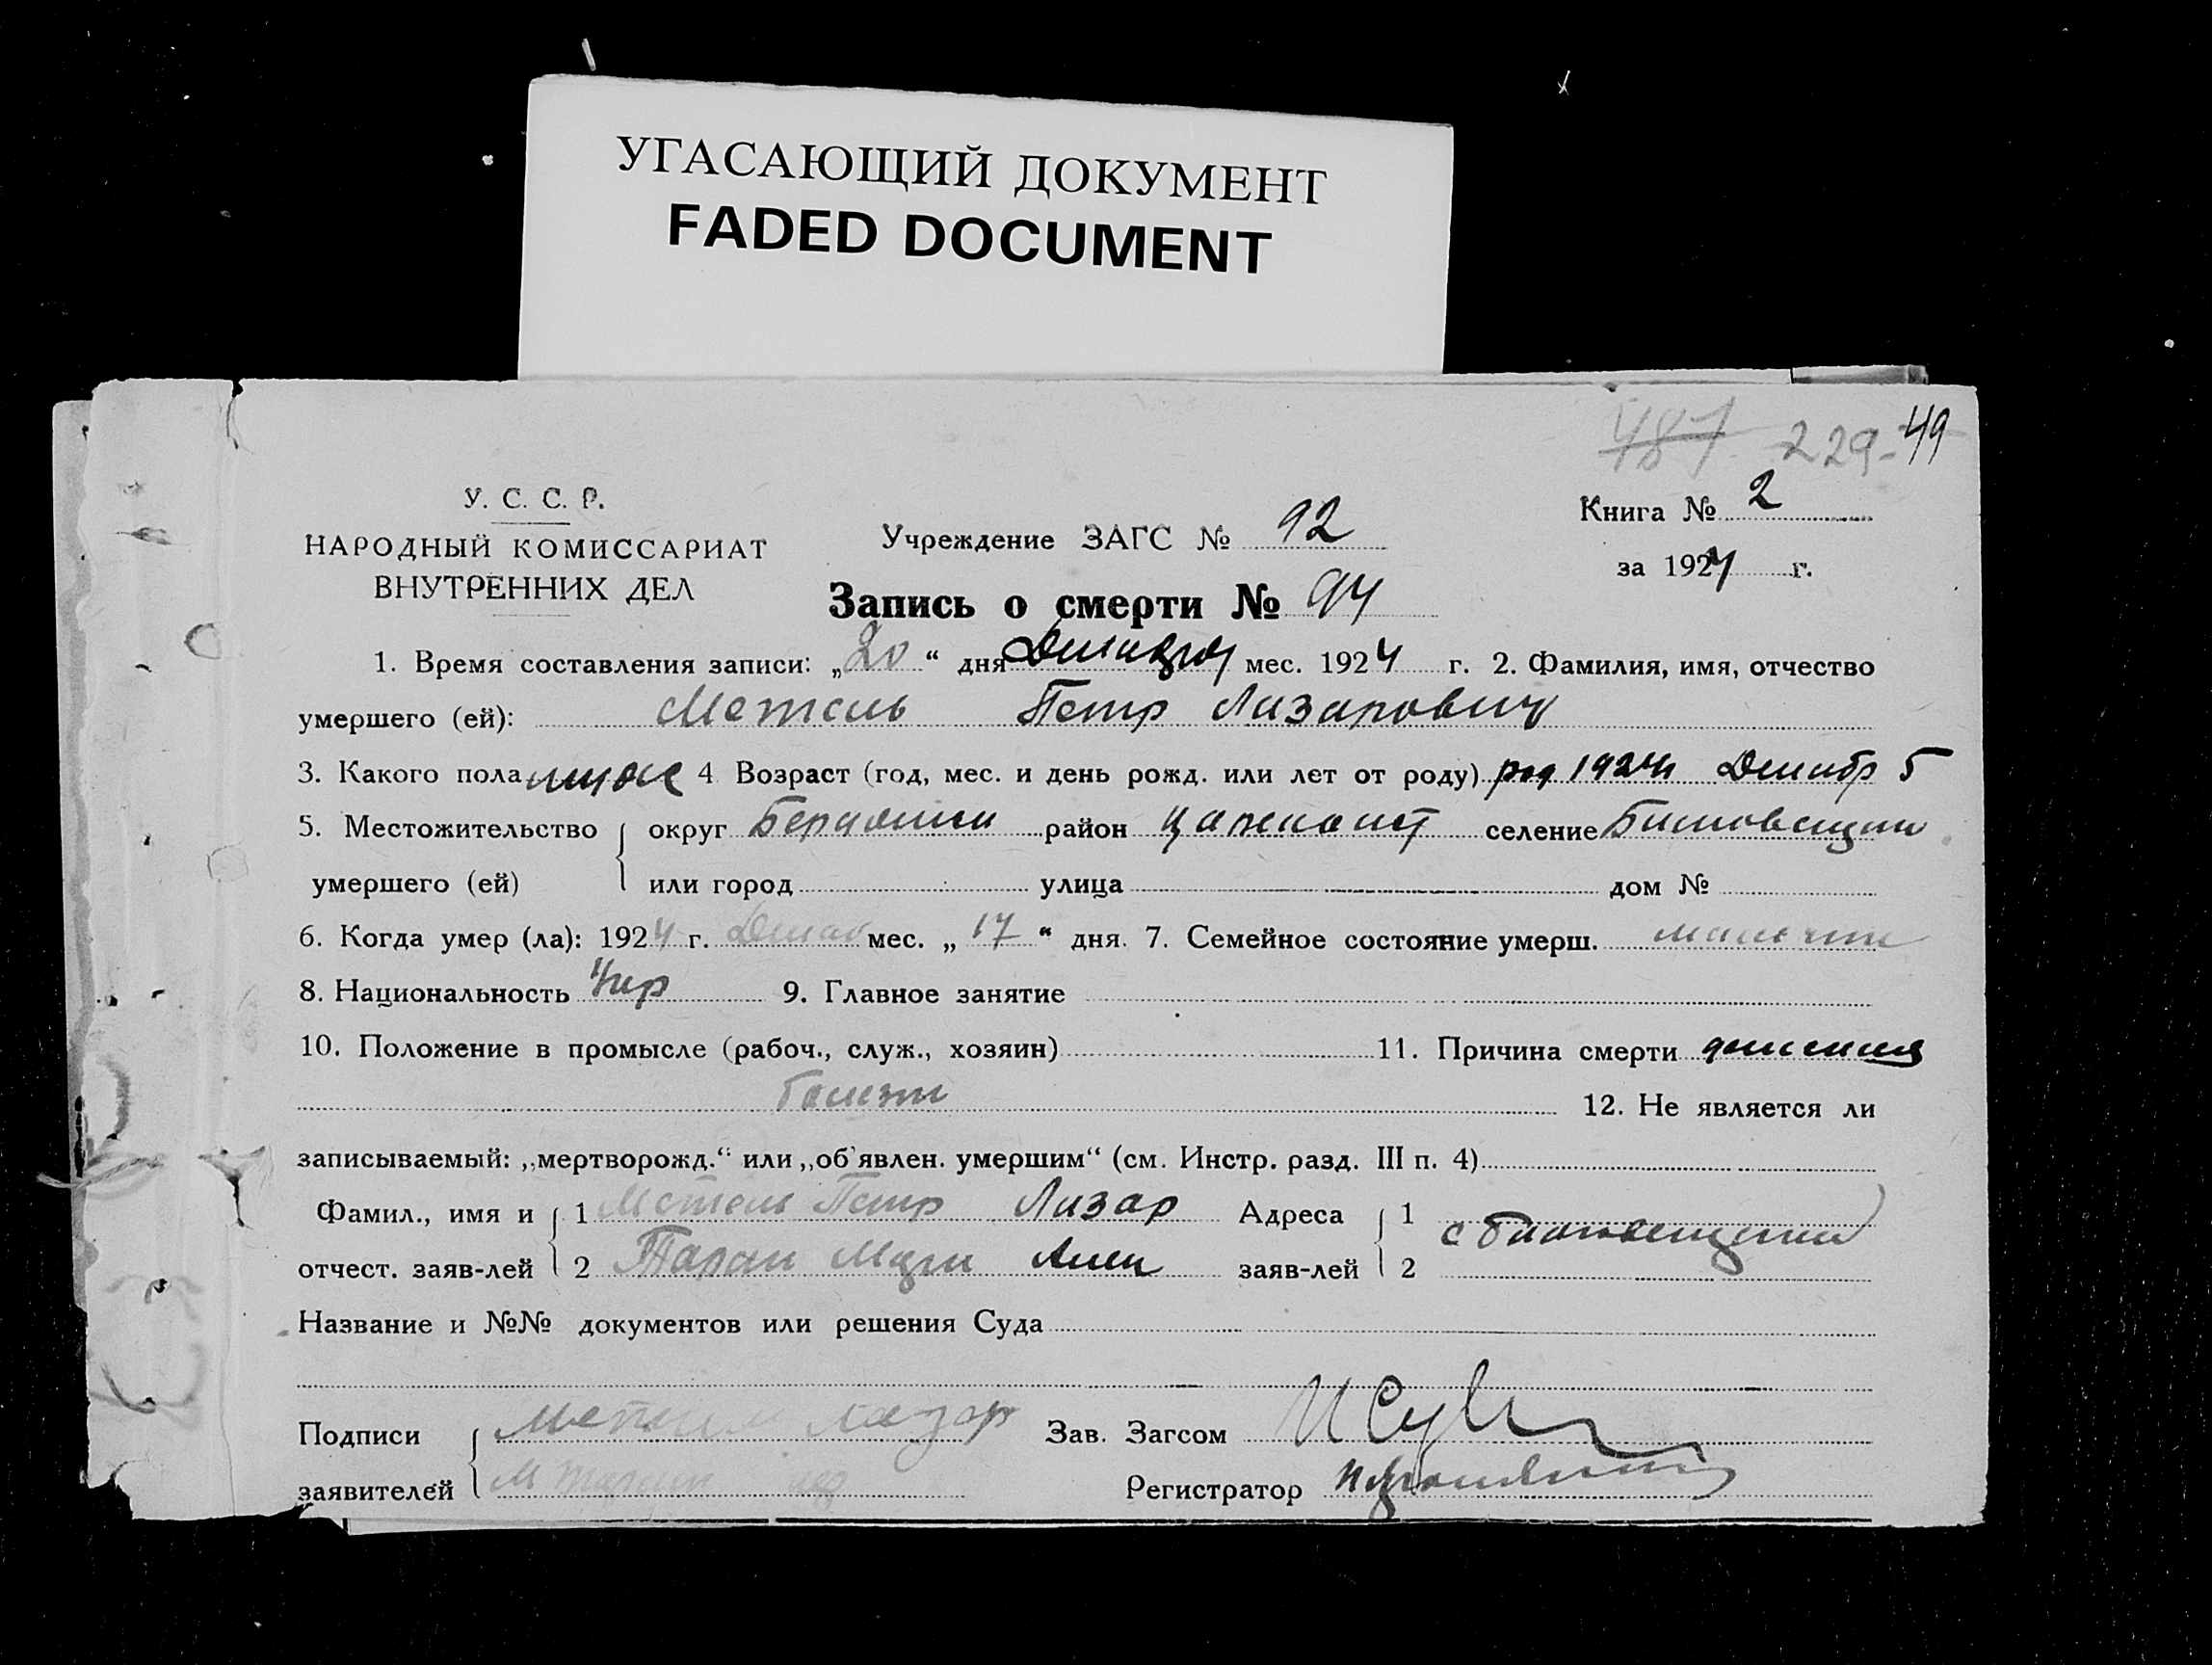 УГАСАЮЩИЙ ДОКУМЕНТ
FADED DOCUMENT
487 229- 49
У. С. С. Р.
НАРОДНЫЙ КОМИССАРИАТ
ВНУТРЕННИХ ДЕЛ
Учреждение ЗАГС № 92
Книга № 2
за 1924 г.
Запись о смерти № 94
1. Время составления записи: „20“ дня мес. 1924 г. 2. Фамилия, имя, отчество
умершего (ей): Метель Петр Лазарович
3. Какого пола муж 4 Возраст (год, мес. и день рожд. или лет от роду) 5
5. Местожительство округ район селение
умершего (ей) или город улица дом №
6. Когда умер (ла): 1924 г. мес. „17“ дня. 7. Семейное состояние умерш.
8. Национальность Укр 9. Главное занятие
10. Положение в промысле (рабоч., служ., хозяин) 11. Причина смерти
12. Не является ли
записываемый: „мертворожд.“ или „об'явлен. умершим“ (см. Инстр. разд. III п. 4)
Фамил., имя и 1 Метель Петр Лазар Адреса 1
отчест. заяв-лей 2 Таран заяв-лей 2
Название и №№ документов или решения Суда
Подписи Зав. Загсом
заявителей Регистратор